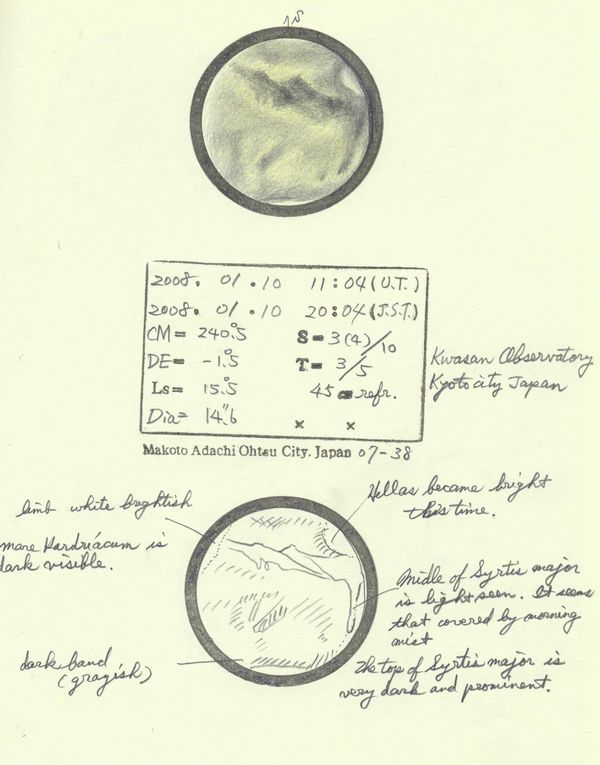 2008. 01.10 11:04 (U.T.)
2008. 01.10 20:04 (J.S.T.)
CM= 240.°5 S=3(4)/10
DE= -1.°5 T= 3/5
Ls= 15.°5 45 refr.
Dia= 14."6 × ×
Makoto Adachi Ohtsu City. Japan 07-38
Kwasan Observatory
Kyoto city Japan
limb white brightish
mare Hardriácum is
dark visible.
dark band
(grayish)
Hellas became bright
this time.
Midle of Syrtis major
is light seen. It seems
that covered by morning
mist
The top of Syrtis major is
very dark and prominent.